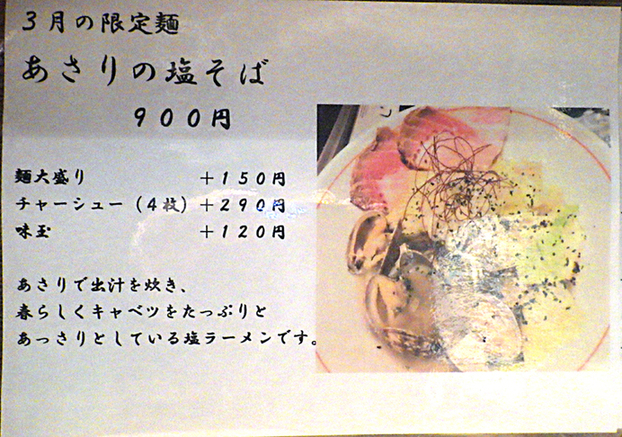 ３月の限定麺
あさりの塩そば
９００円
麺大盛り ＋１５０円
チャーシュー（４枚）＋２９０円
味玉 ＋１２０円
あさりで出汁を炊き、
春らしくキャベツをたっぷりと
あっさりとしている塩ラーメンです。